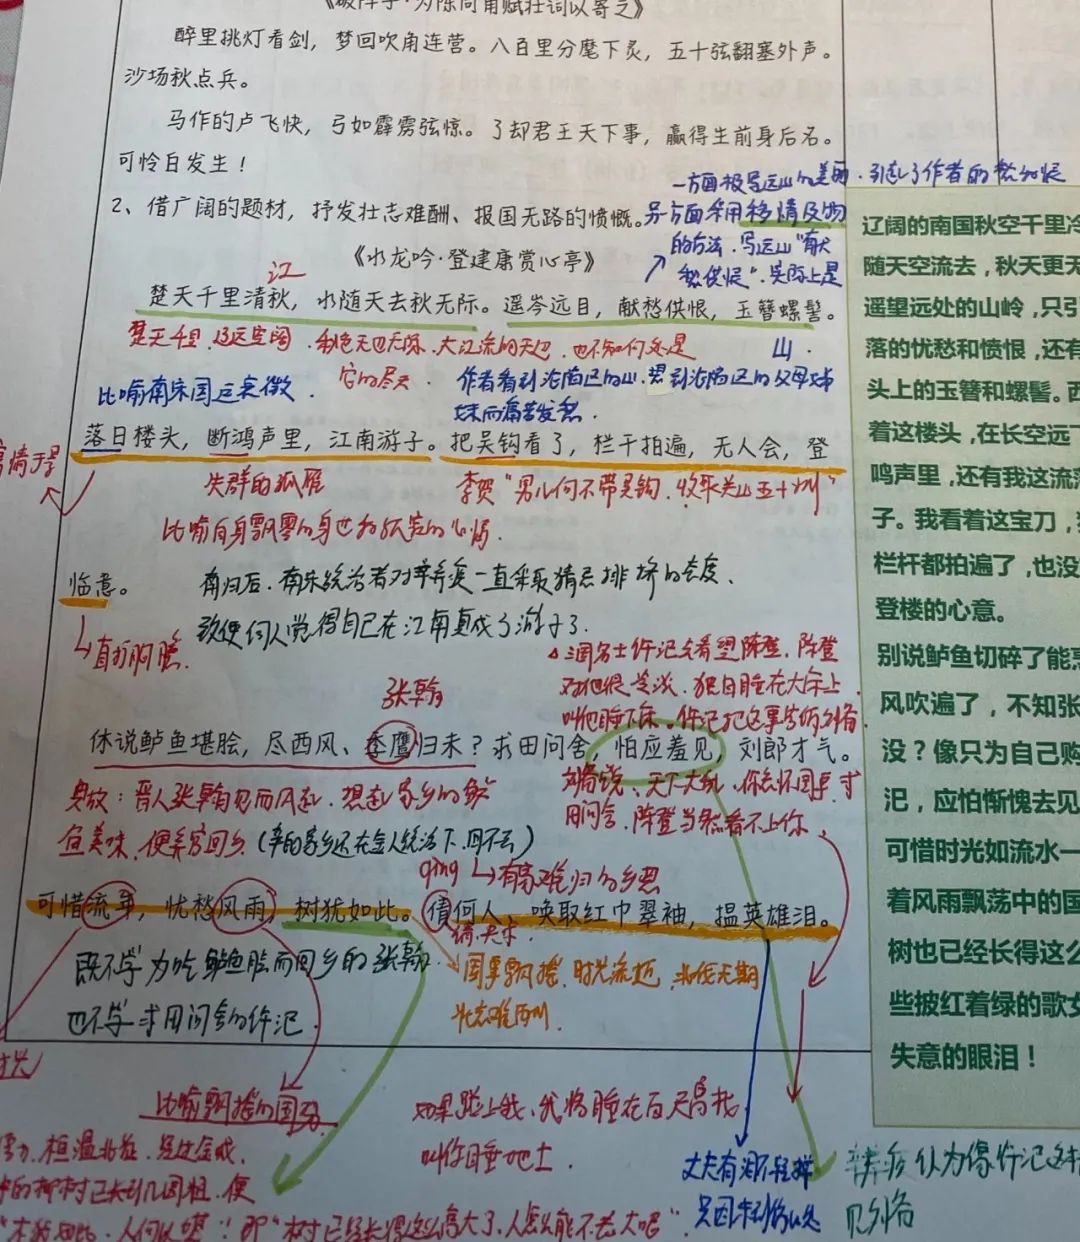 《破阵子·为陈同甫赋壮词以寄之》
醉里挑灯看剑，梦回吹角连营。八百里分麾下炙，五十弦翻塞外声。
沙场秋点兵。
马作的卢飞快，弓如霹雳弦惊。了却君王天下事，赢得生前身后名。
可怜白发生！
一方面极写远山的美丽．引起了作者的愁和恨
2、借广阔的题材，抒发壮志难酬、报国无路的愤慨。
另一方面采用移情及物
的方法．写远山"献
愁供恨"．实际上是
江
《水龙吟·登建康赏心亭》
楚天千里清秋，水随天去秋无际。遥岑远目，献愁供恨，玉簪螺髻。
楚天千里．辽远空阔．秋色无边无际．大江流向天边．也不知何处是
它的尽头．
山．
比喻南宋国运衰微．
作者看到沦陷区的山．想到沦陷区的父母姊
妹而痛苦发愁．
落日楼头，断鸿声里，江南游子。把吴钩看了，栏干拍遍，无人会，登
失群的孤雁
李贺"男儿何不带吴钩．收取关山五十州"
比喻自身飘零的身世和孤寂的心境．
临意。
南归后．南宋统治者对辛弃疾一直采取猜忌排挤的态度、
致使何人觉得自己在江南真成了游子了．
直抒胸臆
三国名士许汜去看望陈登．陈登
对他很冷淡．独自睡在大床上．
叫他睡下床．许汜把这事告诉刘备．
张翰
休说鲈鱼堪脍，尽西风、季鹰归未？求田问舍，怕应羞见，刘郎才气。
典故：晋人张翰见西风起．想起家乡的鲈
鱼美味．便弃官回乡（辛的家乡还在金人统治下．回不去）
刘备说、天下大乱．你忘怀国事．求
田问舍．陈登当然看不上你．
qìng
有家难归的乡思
可惜流年，忧愁风雨，树犹如此。倩何人、唤取红巾翠袖，揾英雄泪。
请求．
既不学为吃鲈鱼脍而回乡的张翰．
也不学求田问舍的许汜．
国事飘摇．时光流逝．北伐无期
壮志难酬．
比喻飘摇的国势
如果碰上我．我将睡在百尺高楼
叫你睡地上．
桓温北征．经过金城．
的柳树已长到几围粗．便
"木犹如此．人何以堪"！即"树已经长得这么高大了．人怎么能不老大呢"
丈夫有泪不轻弹
只因未到伤心处
辛弃疾认为像许汜这样
见刘备
辽阔的南国秋空千里冷
随天空流去，秋天更无
遥望远处的山岭，只引
落的忧愁和愤恨，还有
头上的玉簪和螺髻。西
着这楼头，在长空远飞
鸣声里，还有我这流落
子。我看着这宝刀，
栏杆都拍遍了，也没
登楼的心意。
别说鲈鱼切碎了能烹
风吹遍了，不知张
没？像只为自己购
汜，应怕惭愧去见
可惜时光如流水一
着风雨飘荡中的国
树也已经长得这么
些披红着绿的歌女
失意的眼泪！